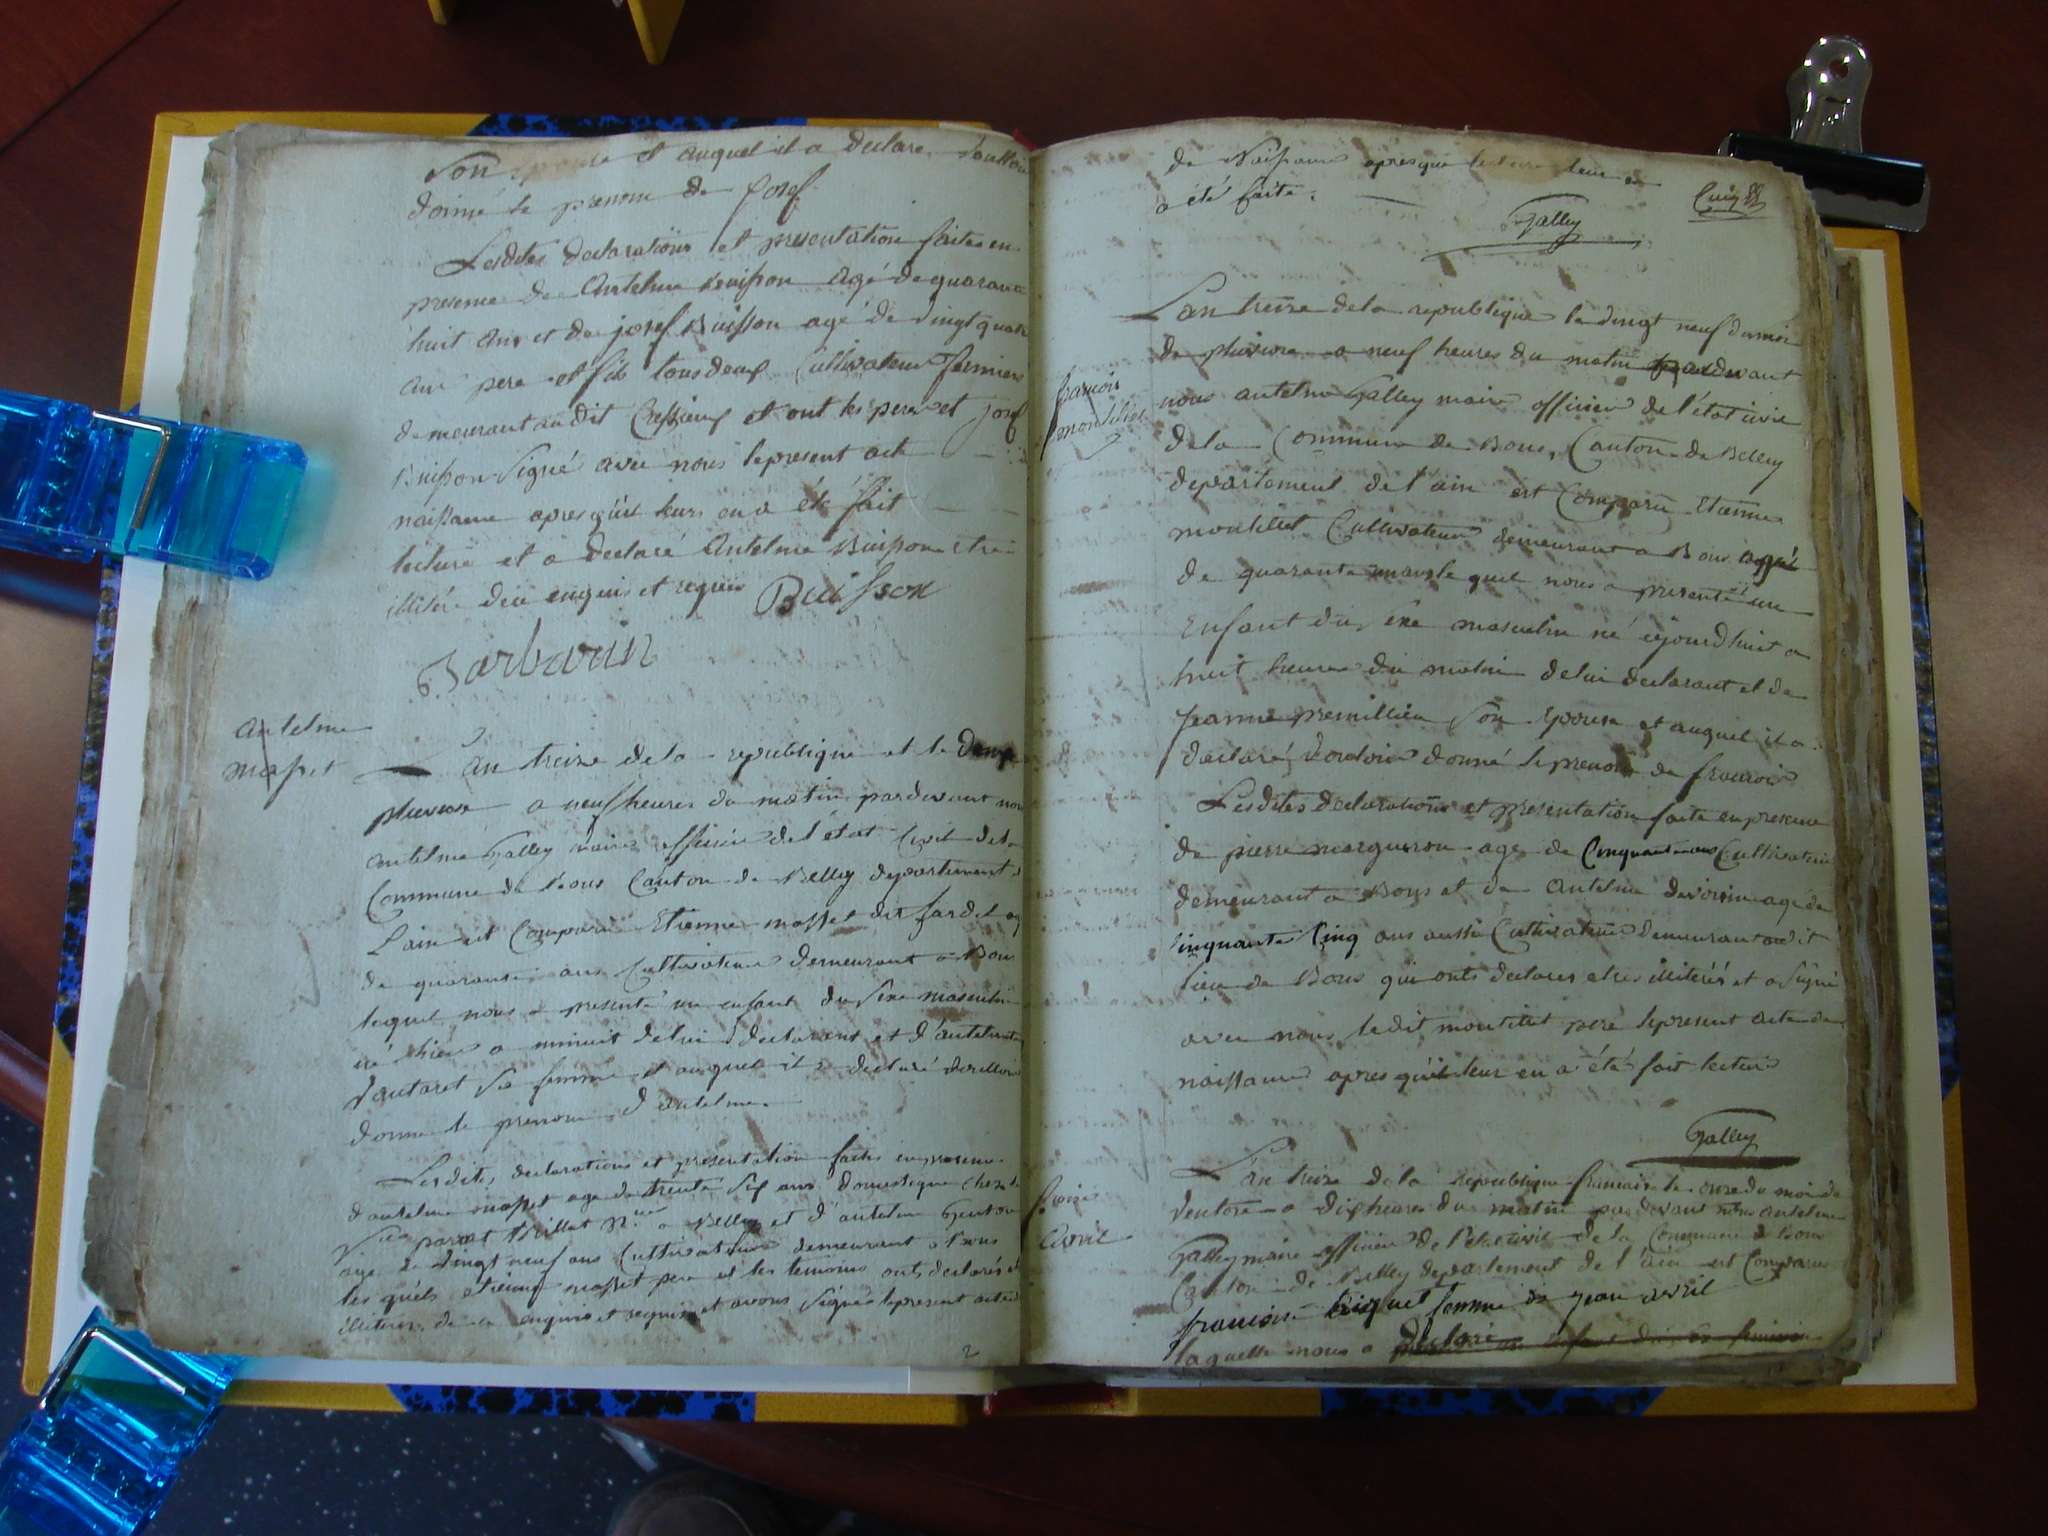 Son et auquel il a declaré vouloir
donné le prenom de Josef
Lesdites declarations et presentation faites en
presence de Antelme Buisson agé de quarante
huit ans et de josef Buisson agé de vingt quatre
ans pere et fils tous deux Cultivateurs fermiers
demeurant audit et ont les pere et josef
Buisson Signé avec nous le present acte
naissance apres qu'il leurs en a été fait
lecture et a declaré Antelme Buisson etre
illiteré de ce enquis et requis Buisson
Barbarin
Antelme
Masset
L'an treize de la republique et le
pluviose a neuf heures du matin pardevant nous
antelme Galley maire officier de l'état Civil de la
Commune de Bons Canton de Belley departement de
L'ain est Comparu Etienne masset dit agé
de quarante ans Cultivateur demeurant a Bons
lequel nous a presenté un enfant du Sexe masculin
né hier a minuit de lui declarant et d'antelmette
Vautaret Sa femme et auquel il a declaré vouloir
donné le prenom d'antelme.
Lesdites declarations et présentation faites en presence
d'antelme masset agé de trente Six ans domestique chez le
Sieur parrat Brillat a Belley et d'antelme
agé de vingt neuf ans Cultivateur demeurant a Bons
les quels etienne masset pere et les temoins onts declarés etre
illiterés de ce enquis et requis et avons Signé le present acte
2
de Naissance apres que lecture leur en
a été faite.
Galley
françois
montillet
L'an treize de la republique le vingt neuf du mois
de pluviose a neuf heures du matin pardevant
nous antelme Galley maire officier de l'état civil
de la Commune de Bons, Canton de Belley
departement de l'ain est Comparu Etienne
montillet Cultivateur demeurant a Bons agé
de quarante ans le quel nous a presenté un
Enfant du Sexe masculin né cejourdhuit a
huit heures du matin de lui declarant et de
Jeanne premillieu Son Epouse et auquel il a
declaré vouloir donné le prenom de françois
Lesdites declarations et presentation faite en presence
de pierre margueron agé de Cinquante ans Cultivateur
demeurant a Bons et de Antelme devoisin agé de
Cinquante Cinq ans aussi Cultivateur demeurant audit
lieu de Bons qui onts declarés etres illiterés et a Signé
avec nous ledit montillet pere le present acte de
naissance apres qu'il leur en a été fait lecture
Galley
avril
L'an treize de la republique francaise le onze du mois de
Ventose a dix heures du matin pardevant nous antelme
Galley maire officier de l'etat civil de la Commune de Bons
Canton de Belley departement de l'ain est Comparue
francoise femme de jean avril
laquelle nous a declaré un enfant du Sexe feminin